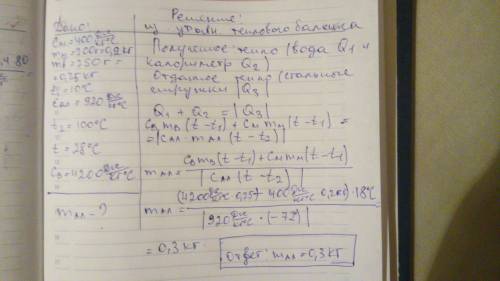 Дано:
cм=400 Дж/кг°C
mм=200г=0,2кг
mв=250г=
=0,25кг
t1=10°C
cал=920 Дж/кг°C
t2=100°C
t=28°C
cв=4200 Дж/кг°C
mал-?
Решение:
из
теплового баланса
Полученное тепло (вода Q1 и
калориметр Q2)
Отданное тепло (стальные
|Q3|
Q1 + Q2 = |Q3|
cвmв(t-t1)+cмmм(t-t1)=
=|cал·mал(t-t2)|
mал= cвmв(t-t1)+cмmм(t-t1) / |cал(t-t2)|
mал= (4200 Дж/кг°C·0,25+400 Дж/кг°C·0,2кг)·18°C / |920 Дж/кг°C·(-72)|
=0,3кг
Ответ: mал=0,3кг